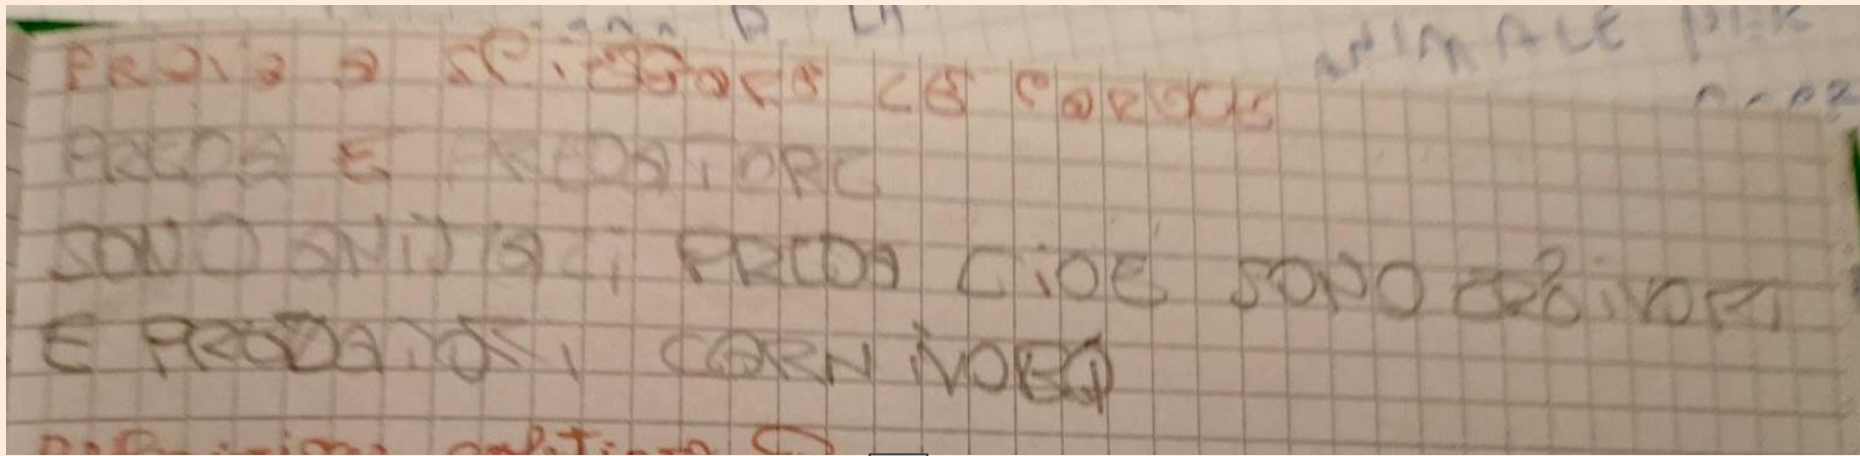 ANIMALE PER
PROVA A SPIEGARE LE PAROLE
PREDA E PREDATORE
SONO ANIMALI PREDA CIOE SONO ERBIVORI
E PREDATORI CARNIVORI